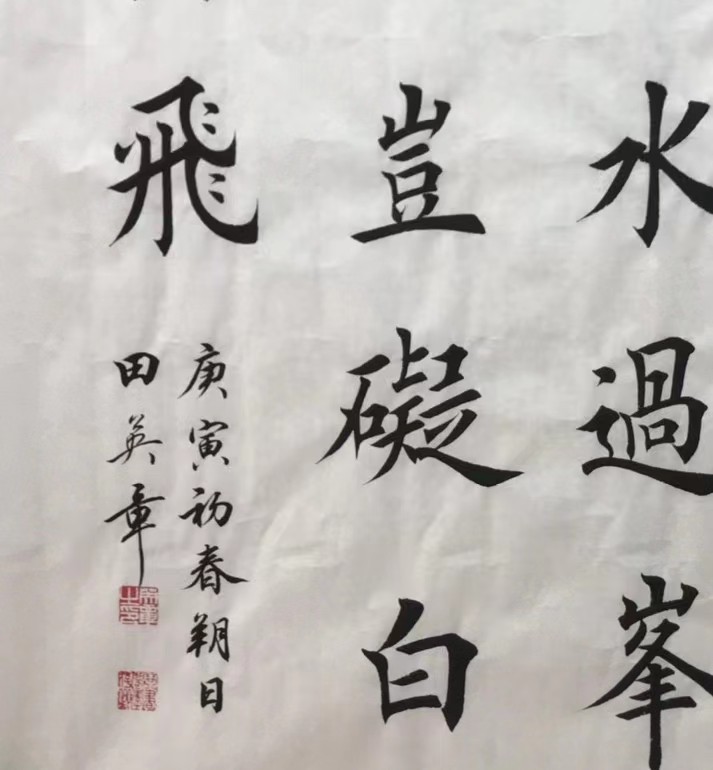 水過峯
豈礙白
飛
庚寅初春朔日
田英章